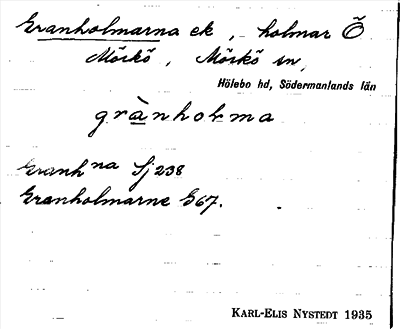 Granholmarna ek, - holmar Ö
Mörkö, Mörkö sn,
Hölebo hd, Södermanlands län
grànholma
Granh na Sj 238
Granholmarne G67.
KARL-ELIS NYSTEDT 1935